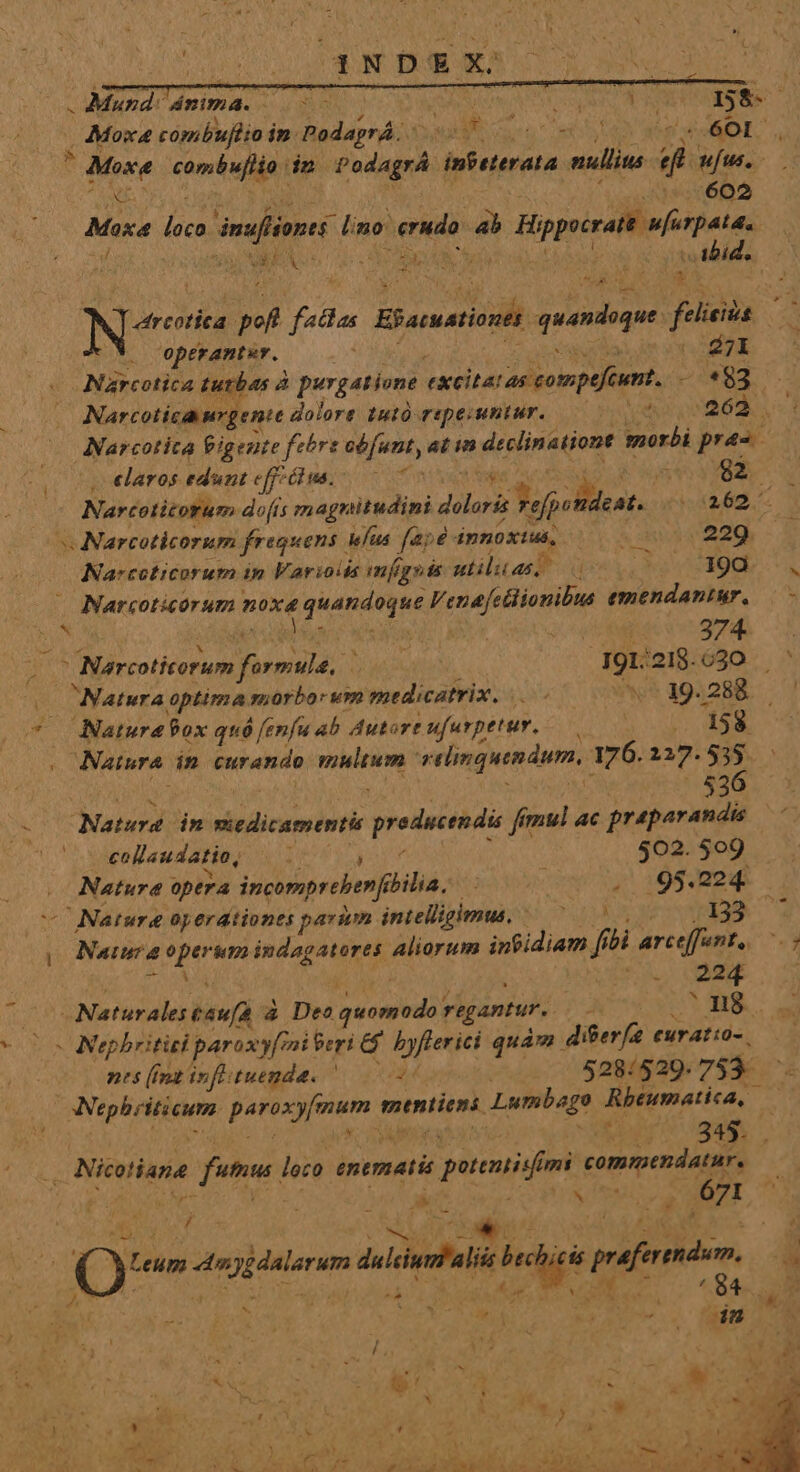 INDEX.
Mundi anima. 158
Moxæ combuſtio in Podagrâ. 601
Moxæ combuſtio in Podagrâ inveterata nullius eſt uſus.
602
Moxæ loco inuſtiones lino crudo ab Hippocrate uſurpatæ.
ibid.
NArcotica poſt factas Evacuationes quandoque feliciùs
operantur. 271
Narcotica turbas à purgatione excitatas compeſcunt. 183
Narcotica urgente dolore tutò repetuntur. 262
Narcotica vigente febre obſunt, at in declinatione morbi præ-
claros edunt effectus. 82
Narcoticorum doſis magnitudini doloris reſpondeat. 262
Narcoticorum frequens uſus ſæpè innoxius. 229
Narcoticorum in Variolis inſignis utilitas. 190
Narcoticorum noxæ quandoque Venæſectionibus emendantur.
374
Narcoticorum formulæ, 191. 218. 030
Natura optima morborum medicatrix. 19. 288
Naturæ vox quô ſenſu ab Autore uſurpetur. 158
Naturæ in curando multum relinquendum, 176. 227. 535
536
Naturæ in medicamentis producendis ſimul ac præparandis
collaudatio, 502. 509
Naturæ opera incomprehenſibilia. 95. 224
Naturæ operationes parùm intelligimus. 133
Naturæ operum indagatores aliorum invidiam ſibi arceſſunt.
224
Naturales cauſæ à Deo quomodo regantur. 118
Nephritici paroxyſmi veri & hyſterici quàm diverſæ curatio-
nes ſint inſtituendæ. 528. 529. 753
Nephriticum paroxyſmum mentiens Lumbago Rheumatica,
345.
Nicotianæ fumus loco enematis potentiſſimi commendatur.
671
OLeum Amygdalarum dulcium aliis bechicis præferendum.
84
in